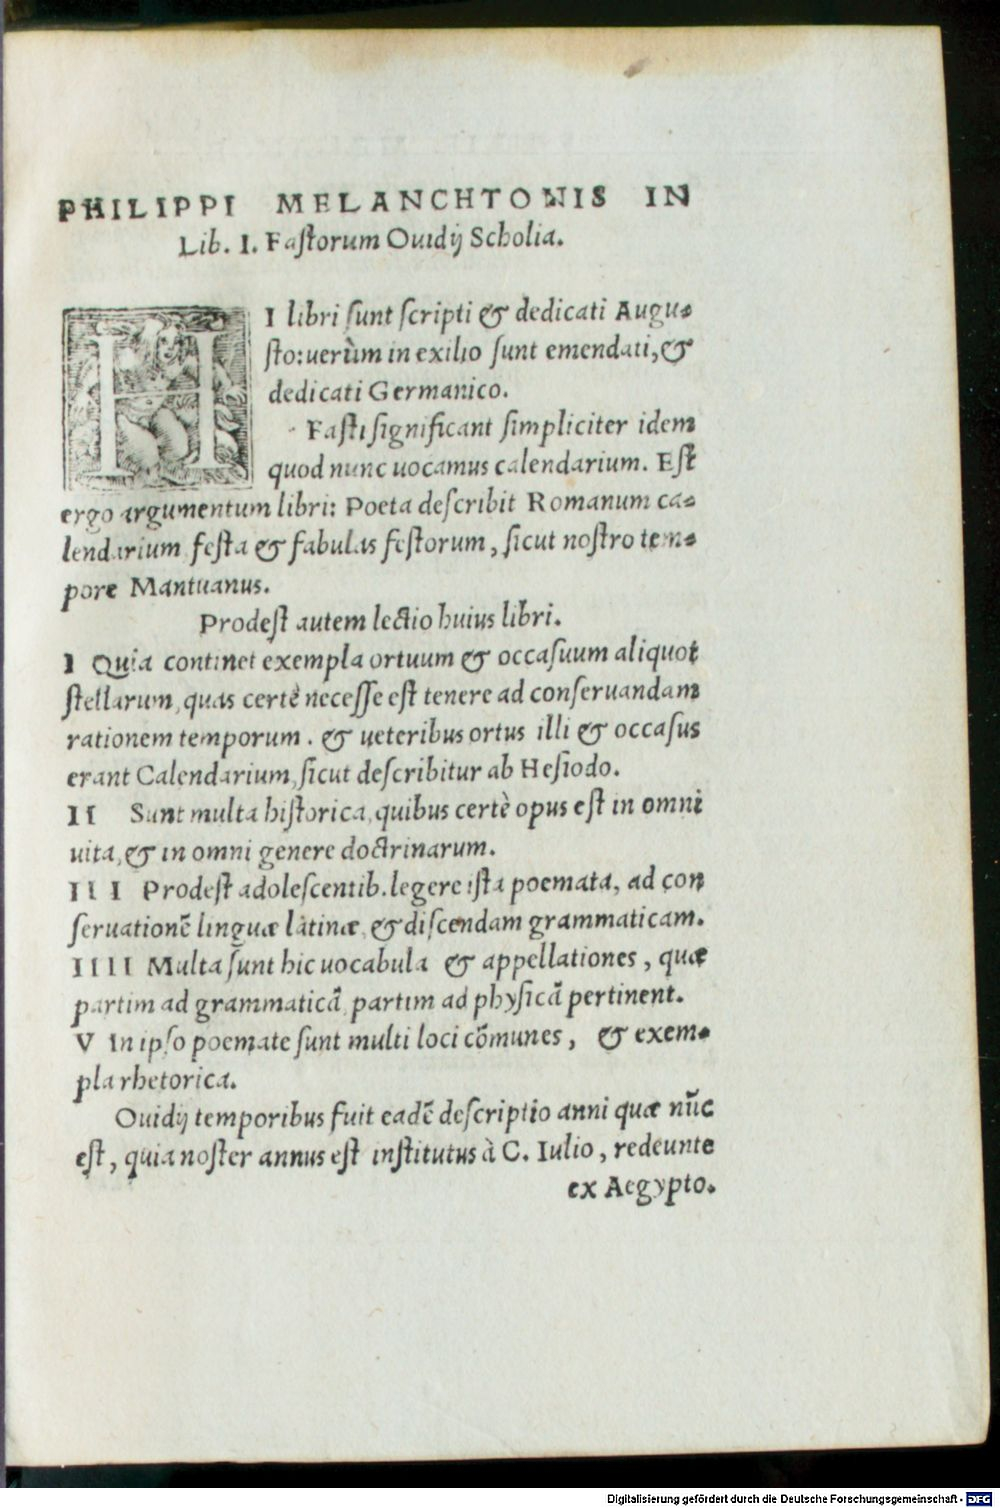 PHILIPPI MELANCHTONIS IN
Lib. I. Faſtorum Ouidij Scholia.
HI libri ſunt ſcripti & dedicati Augu-
ſto: uerùm in exilio ſunt emendati, &
dedicati Germanico.
Faſti ſignificant ſimpliciter idem
quod nunc uocamus calendarium. Eſt
ergo argumentum libri: Poeta deſcribit Romanum ca-
lendarium feſta & fabulas feſtorum, ſicut noſtro tem-
pore Mantuanus.
Prodeſt autem lectio huius libri.
I Quia continet exempla ortuum & occaſuum aliquot
ſtellarum, quas certè neceſſe eſt tenere ad conſeruandam
rationem temporum. & ueteribus ortus illi & occaſus
erant Calendarium, ſicut deſcribitur ab Heſiodo.
II Sunt multa hiſtorica, quibus certè opus eſt in omni
uita, & in omni genere doctrinarum.
III Prodeſt adoleſcentib. legere iſta poemata, ad con
ſeruationẽ linguæ latinæ, & diſcendam grammaticam.
IIII Multa ſunt hic uocabula & appellationes, quæ
partim ad grammaticã partim ad phyſicã pertinent.
V In ipſo poemate ſunt multi loci cõmunes, & exem-
pla rhetorica.
Ouidij temporibus fuit eadẽ deſcriptio anni quæ nũc
eſt, quia noſter annus eſt inſtitutus à C. Iulio, redeunte
ex Aegypto.
Digitalisierung gefördert durch die Deutsche Forschungsgemeinschaft - DFG